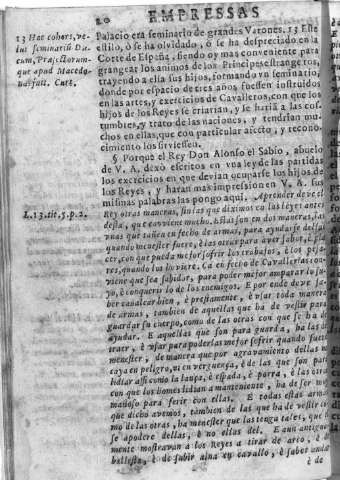 20 EMPRESSAS
13 Hac cohors, velut seminariũ Ducum, Præfectorumque apud Macedonas fuit. Curt.
Palacio era seminario de grandes Varones. 13 Este
estilo, ò se ha olvidado, ò se ha despreciado en la
Corte de España, siendo oy mas conveniente para
grangear los animos de los Principes estrangeros,
trayendo a ella sus hijos, formando vn seminario,
donde por espacio de tres años fuessen instruidos
en las artes, y exercicios de Cavalleros, con que los
hijos de los Reyes se criarian, y se haria a las costumbres,
y trato de las naciones, y tendrian muchos
en ellas, que con particular afecto, y reconocimiento
los sirviessen.
§ Porque el Rey Don Alonso el Sabio, abuelo
de V. A. dexò escritos en vna ley de las partidas
los exercicios en que devian ocuparse los hijos de
los Reyes, y haran mas impression en V. A. sus
mismas palabras las pongo aqui. Aprender deve el
L. 13. tit. 5. p. 2.
Rey otras maneras, sin las que diximos en las leyes ante
desta, que conviene mucho. E estas son en dos maneras, las
vnas que tañen en fecho de armas, para ayudarse dellas
quando menester fuere, è las otras para aver sabor, è plazer,
con que pueda mejor sofrir los trabajos, è los pesares,
quando los hoviere. Ca en fecho de Cavalleria conviene
que sea sabidor, para poder mejor amparar lo suyo,
è conquerir lo de los enemigos. E por ende deve saber
cavalcar bien, è prestamente, è vsar toda manera
de armas, tambien de aquellas que ha de vestir para
guardar su cuerpo, como de las otras con que se ha de
ayudar. E aquellas que son para guarda, ha las de
traer, è vsar para poderlas mejor sofrir quando fuere
menester, de manera que por agravamiento dellas no
caya en peligro, ni en verguença, è de las que son para
lidiar assi como la lança, è espada, è porra, è las otras
con que los homes lidian a manteniente, ha de ser muy
mañoso para ferir con ellas. E todas estas armas
que dicho avemos, tambien de las que ha de vestir como
de las otras, ha menester que las tenga tales, que èl
se apodere dellas, è no ellas del. E aun antiguamente
mostravan a los Reyes a tirar de arco, è de
ballesta, è de subir aina en cavallo, è saber nadar
è de